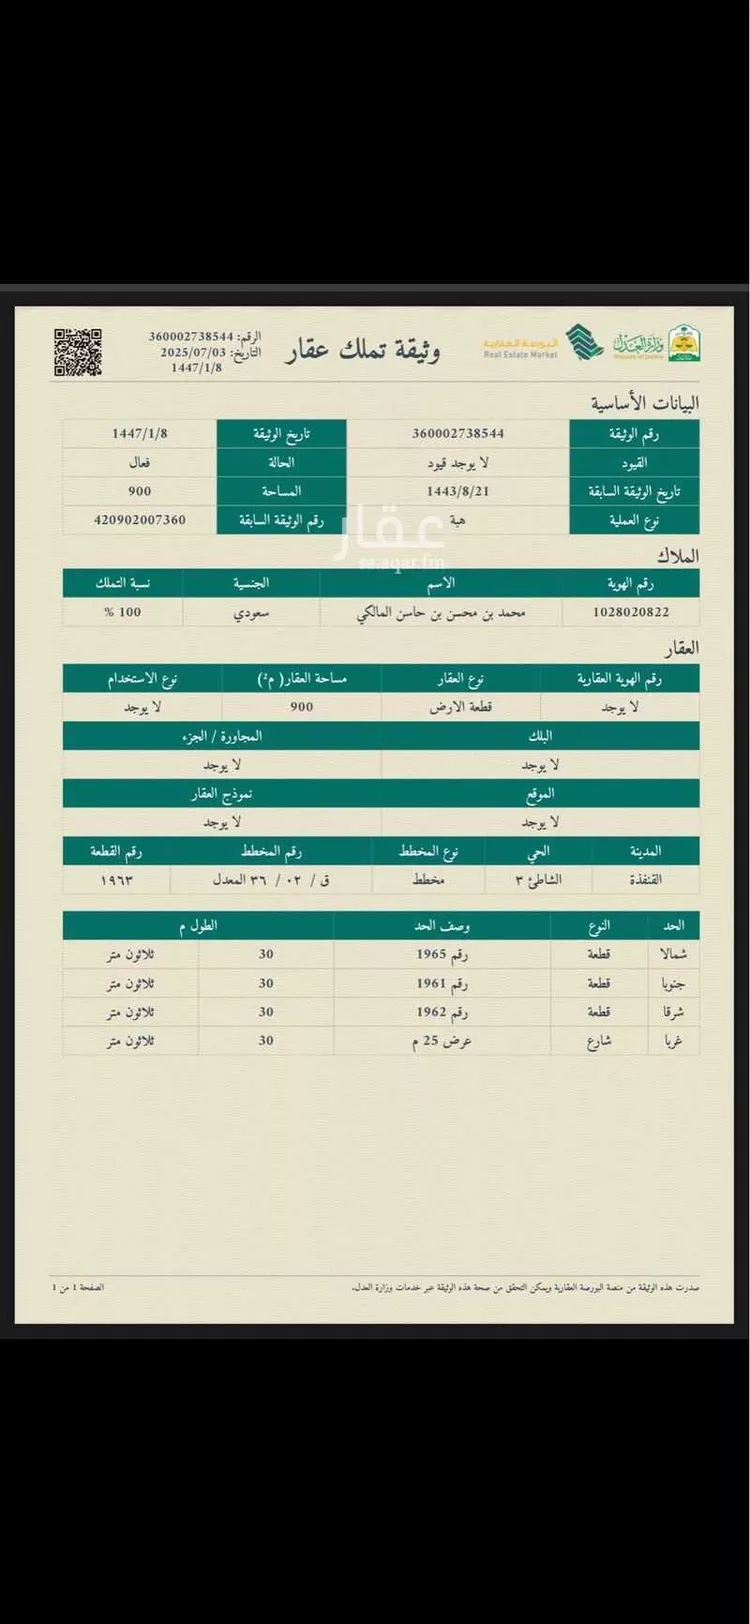 وزارة العدل
Ministry of Justice
البورصة العقارية
Real Estate Market
وثيقة تملك عقار
الرقم: 360002738544
التاريخ: 2025/07/03
1447/1/8
البيانات الأساسية
رقم الوثيقة 360002738544 تاريخ الوثيقة 1447/1/8
القيود لا يوجد قيود الحالة فعال
تاريخ الوثيقة السابقة 1443/8/21 المساحة 900
نوع العملية هبة رقم الوثيقة السابقة 420902007360
عقار
sa.aqar.fm
الملاك
رقم الهوية الاسم الجنسية نسبة التملك
1028020822 محمد بن محسن بن حاسن المالكي سعودي 100 %
العقار
رقم الهوية العقارية نوع العقار مساحة العقار( م²) نوع الاستخدام
لا يوجد قطعة الارض 900 لا يوجد
البلك المجاورة / الجزء
لا يوجد لا يوجد
الموقع نموذج العقار
لا يوجد لا يوجد
المدينة الحي نوع المخطط رقم المخطط رقم القطعة
القنفذة الشاطئ ٣ مخطط ق / ٠٢ / ٣٦ المعدل ١٩٦٣
الحد النوع وصف الحد الطول م
شمالا قطعة رقم 1965 30 ثلاثون متر
جنوبا قطعة رقم 1961 30 ثلاثون متر
شرقا قطعة رقم 1962 30 ثلاثون متر
غربا شارع عرض 25 م 30 ثلاثون متر
صدرت هذه الوثيقة من منصة البورصة العقارية ويمكن التحقق من صحة هذه الوثيقة عبر خدمات وزارة العدل.
الصفحة 1 من 1